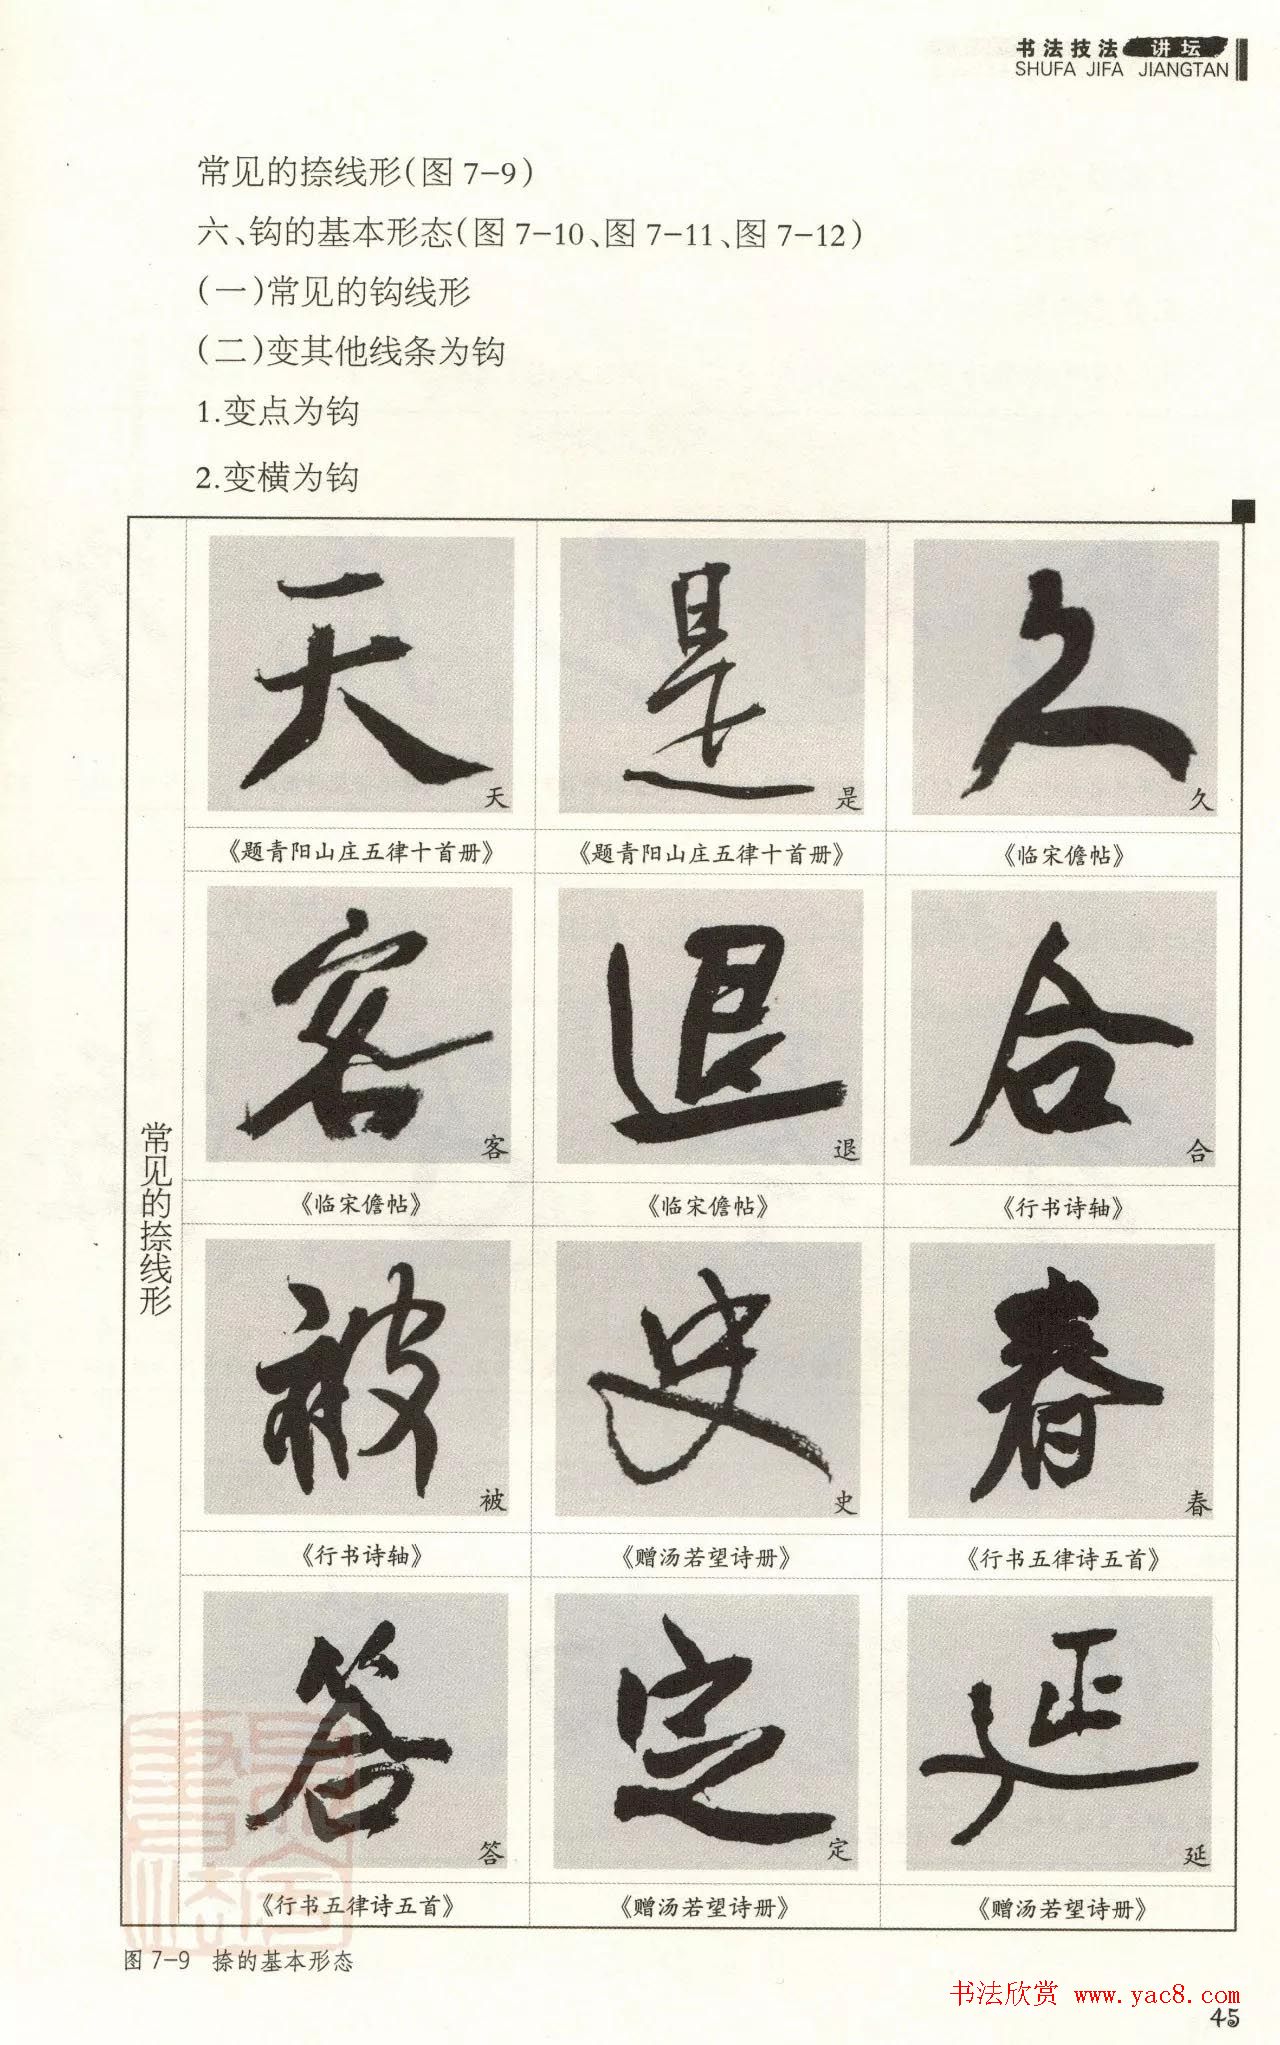 书法技法 讲坛
SHUFA JIFA JIANGTAN
常见的捺线形(图7-9)
六、钩的基本形态(图7-10、图7-11、图7-12)
(一)常见的钩线形
(二)变其他线条为钩
1.变点为钩
2.变横为钩
常见的捺线形
天 天
是 是
久 久
《题青阳山庄五律十首册》
《题青阳山庄五律十首册》
《临宋儋帖》
客 客
退 退
合 合
《临宋儋帖》
《临宋儋帖》
《行书诗轴》
被 被
史 史
春 春
《行书诗轴》
《赠汤若望诗册》
《行书五律诗五首》
答 答
定 定
延 延
《行书五律诗五首》
《赠汤若望诗册》
《赠汤若望诗册》
图7-9 捺的基本形态
书法欣赏 www.yac8.com
45